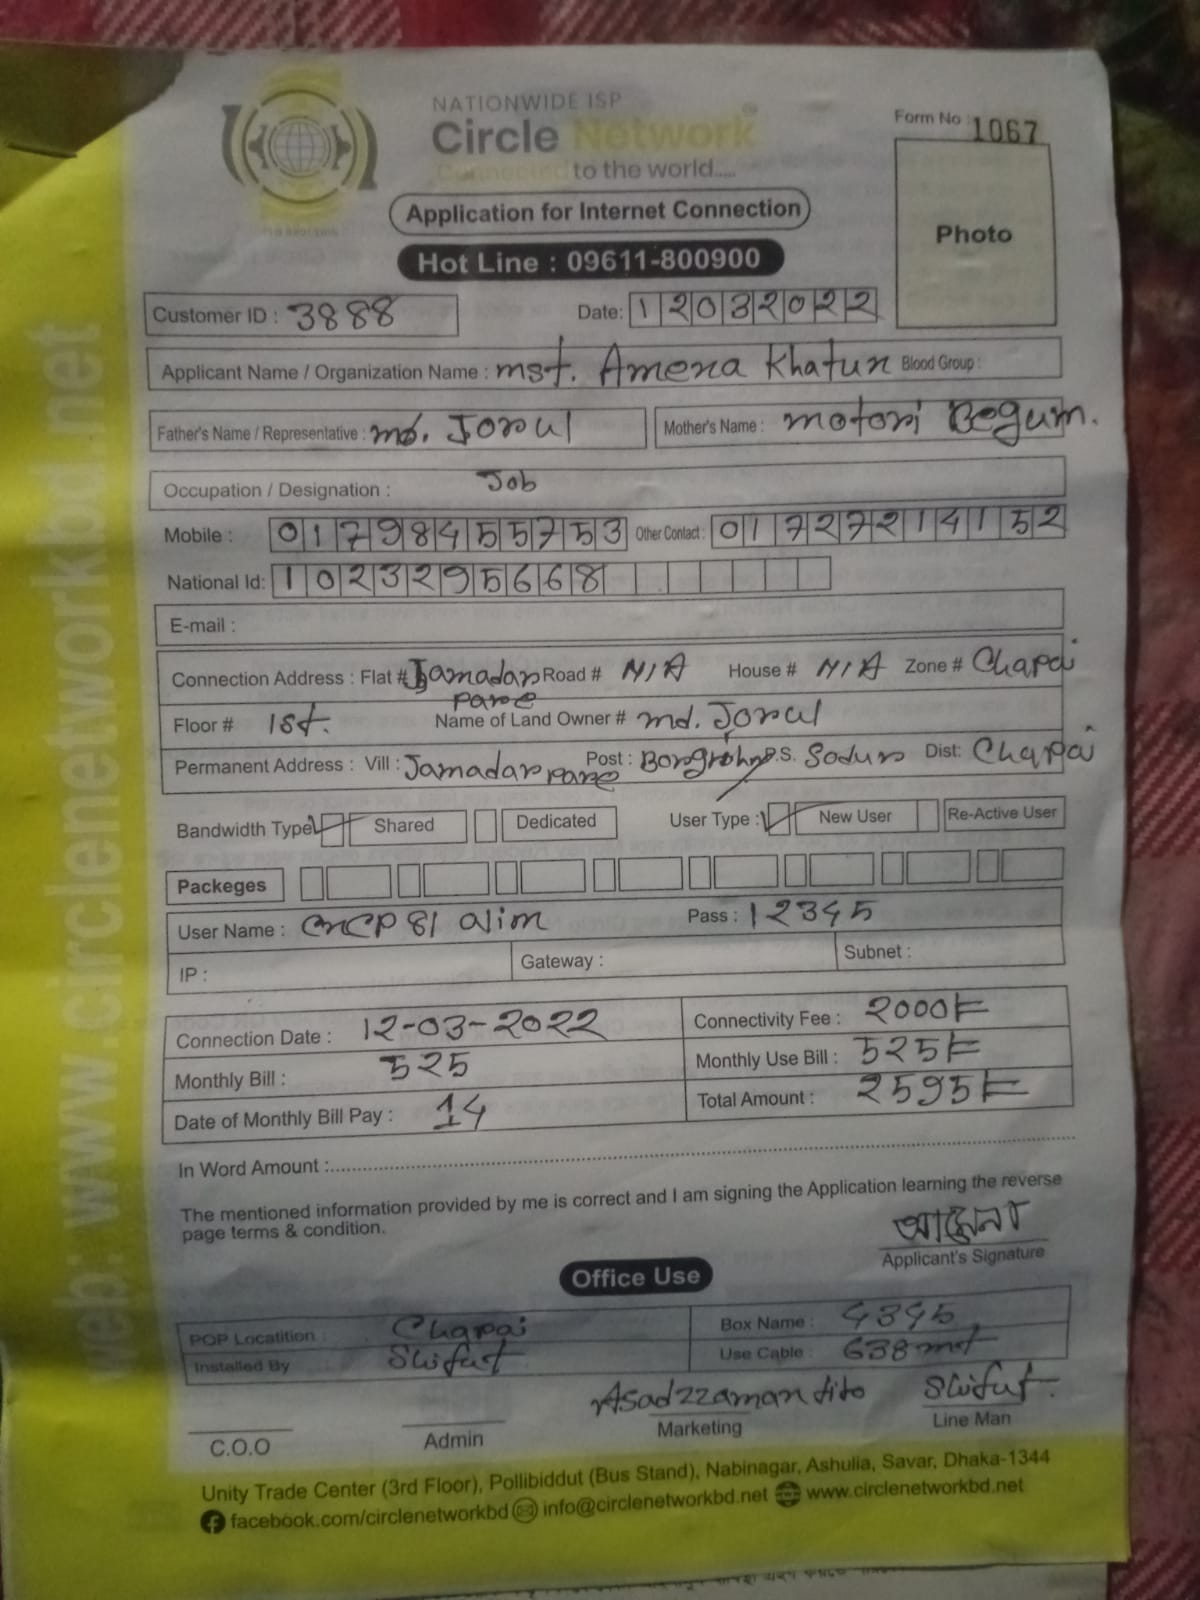 NATIONWIDE ISP
Circle Network
Connected to the world.....
Form No : 1067
Application for Internet Connection
Photo
Hot Line : 09611-800900
Customer ID : 3888 Date: 12032022
Applicant Name / Organization Name : mst. Amena Khatun Blood Group :
Father's Name / Representative : md. Jorul Mother's Name : motori Begum.
Occupation / Designation : Job
Mobile : 01798455753 Other Contact : 01727214152
National Id: 1023295668
E-mail :
Connection Address : Flat # Jamadar pare Road # N/A House # N/A Zone # Chapai
Floor # 1st. Name of Land Owner # md. Jorul
Permanent Address : Vill : Jamadar pare Post : P.S. Sodur Dist: Chapai
Bandwidth Type Shared Dedicated User Type : New User Re-Active User
Packeges
User Name : CNCP 81 alim Pass : 12345
IP : Gateway : Subnet :
Connection Date : 12-03-2022 Connectivity Fee : 2000/=
Monthly Bill : 525 Monthly Use Bill : 525/=
Date of Monthly Bill Pay : 14 Total Amount : 2595/=
In Word Amount :
The mentioned information provided by me is correct and I am signing the Application learning the reverse
page terms & condition.
আমেনা
Applicant's Signature
Office Use
POP Locatition : Chapai Box Name : 4345
Installed By Shifut Use Cable : 638 mt
Asadzzaman tito Shifut.
C.O.O Admin Marketing Line Man
Unity Trade Center (3rd Floor), Pollibiddut (Bus Stand), Nabinagar, Ashulia, Savar, Dhaka-1344
facebook.com/circlenetworkbd info@circlenetworkbd.net www.circlenetworkbd.net
web: www.circlenetworkbd.net